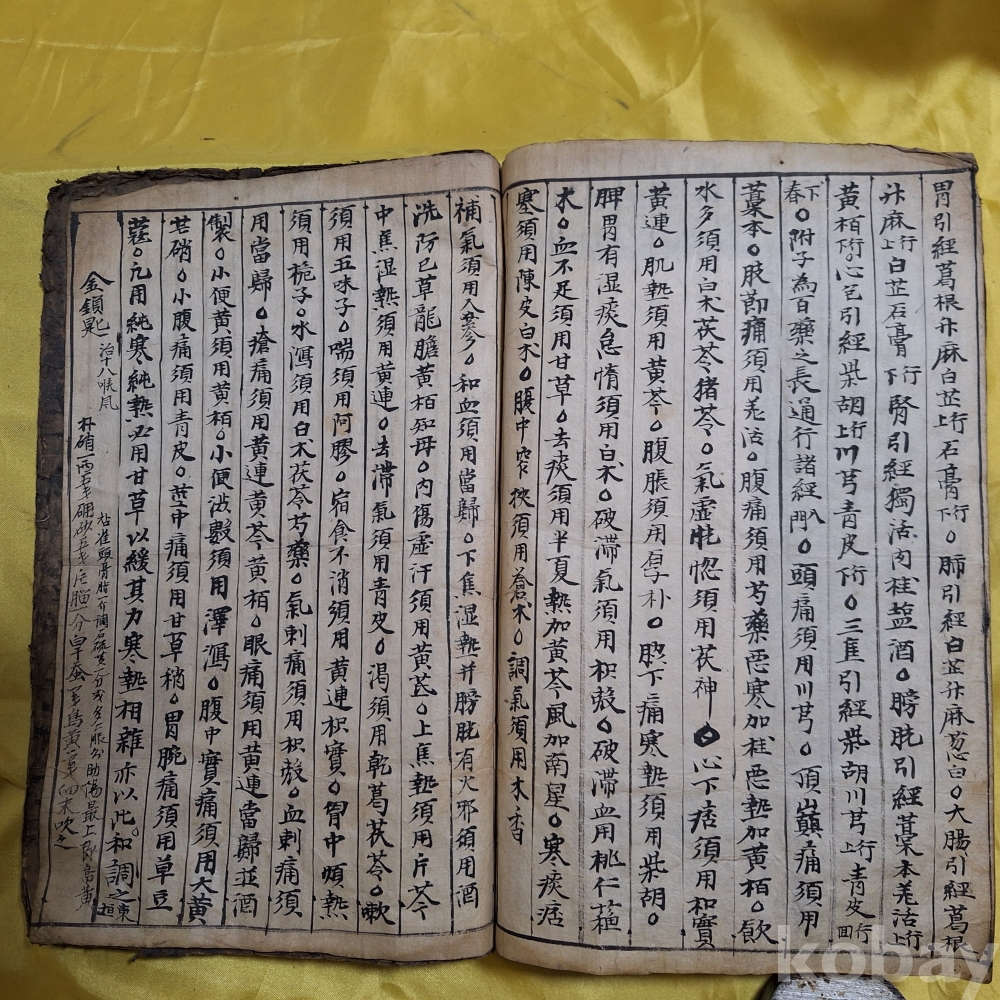 胃引經葛根升麻白芷上行石膏下行○肺引經白芷升麻葱白○大腸引經葛根
升麻上行白芷石膏下行腎引經獨活肉桂盐酒○膀胱引經藁本羌活上行
黃栢下行○心包引經柴胡上行川芎青皮下行○三焦引經柴胡川芎上行青皮下行
○附子為百藥之長通行諸經○頭痛須用川芎○頂巔痛須用
藁本○肢節痛須用羌活○腹痛須用芍藥惡寒加桂惡熱加黃栢○飲
水多須用白朮茯苓猪苓○氣虛恍惚須用茯神○心下痞須用枳實
黃連○肌熱須用黃芩○腹脹須用厚朴○脇下痛寒熱須用柴胡○
脾胃有湿痰怠惰須用白朮○破滯氣須用枳殼○破滯血用桃仁蘓
木○血不足須用甘草○去痰須用半夏熱加黃芩風加南星○寒痰痞
塞須用陳皮白朮○腹中窄狹須用蒼朮○調氣須用木香
補氣須用人參○和血須用當歸○下焦湿熱并膀胱有火邪須用酒
洗防已草龍膽黃栢知母○內傷虛汗須用黃茋○上焦熱須用片芩
中焦湿熱須用黃連○去滯氣須用青皮○渴須用乾葛茯苓○嗽
須用五味子○喘須用阿膠○宿食不消須用黃連枳實○胷中煩熱
須用梔子○水瀉須用白朮茯苓芍藥○氣刺痛須用枳殼○血刺痛須
用當歸○瘡痛須用黃連黃芩黃栢○眼痛須用黃連當歸並酒
製○小便黃須用黃栢○小便澁數須用澤瀉○腹中實痛須用大黃
芒硝○小腹痛須用青皮○莖中痛須用甘草稍○胃腕痛須用草豆
蔻○凡用純寒純熱必用甘草以緩其力寒熱相雜亦以此和調之東垣
金鎖匙 治十八喉風